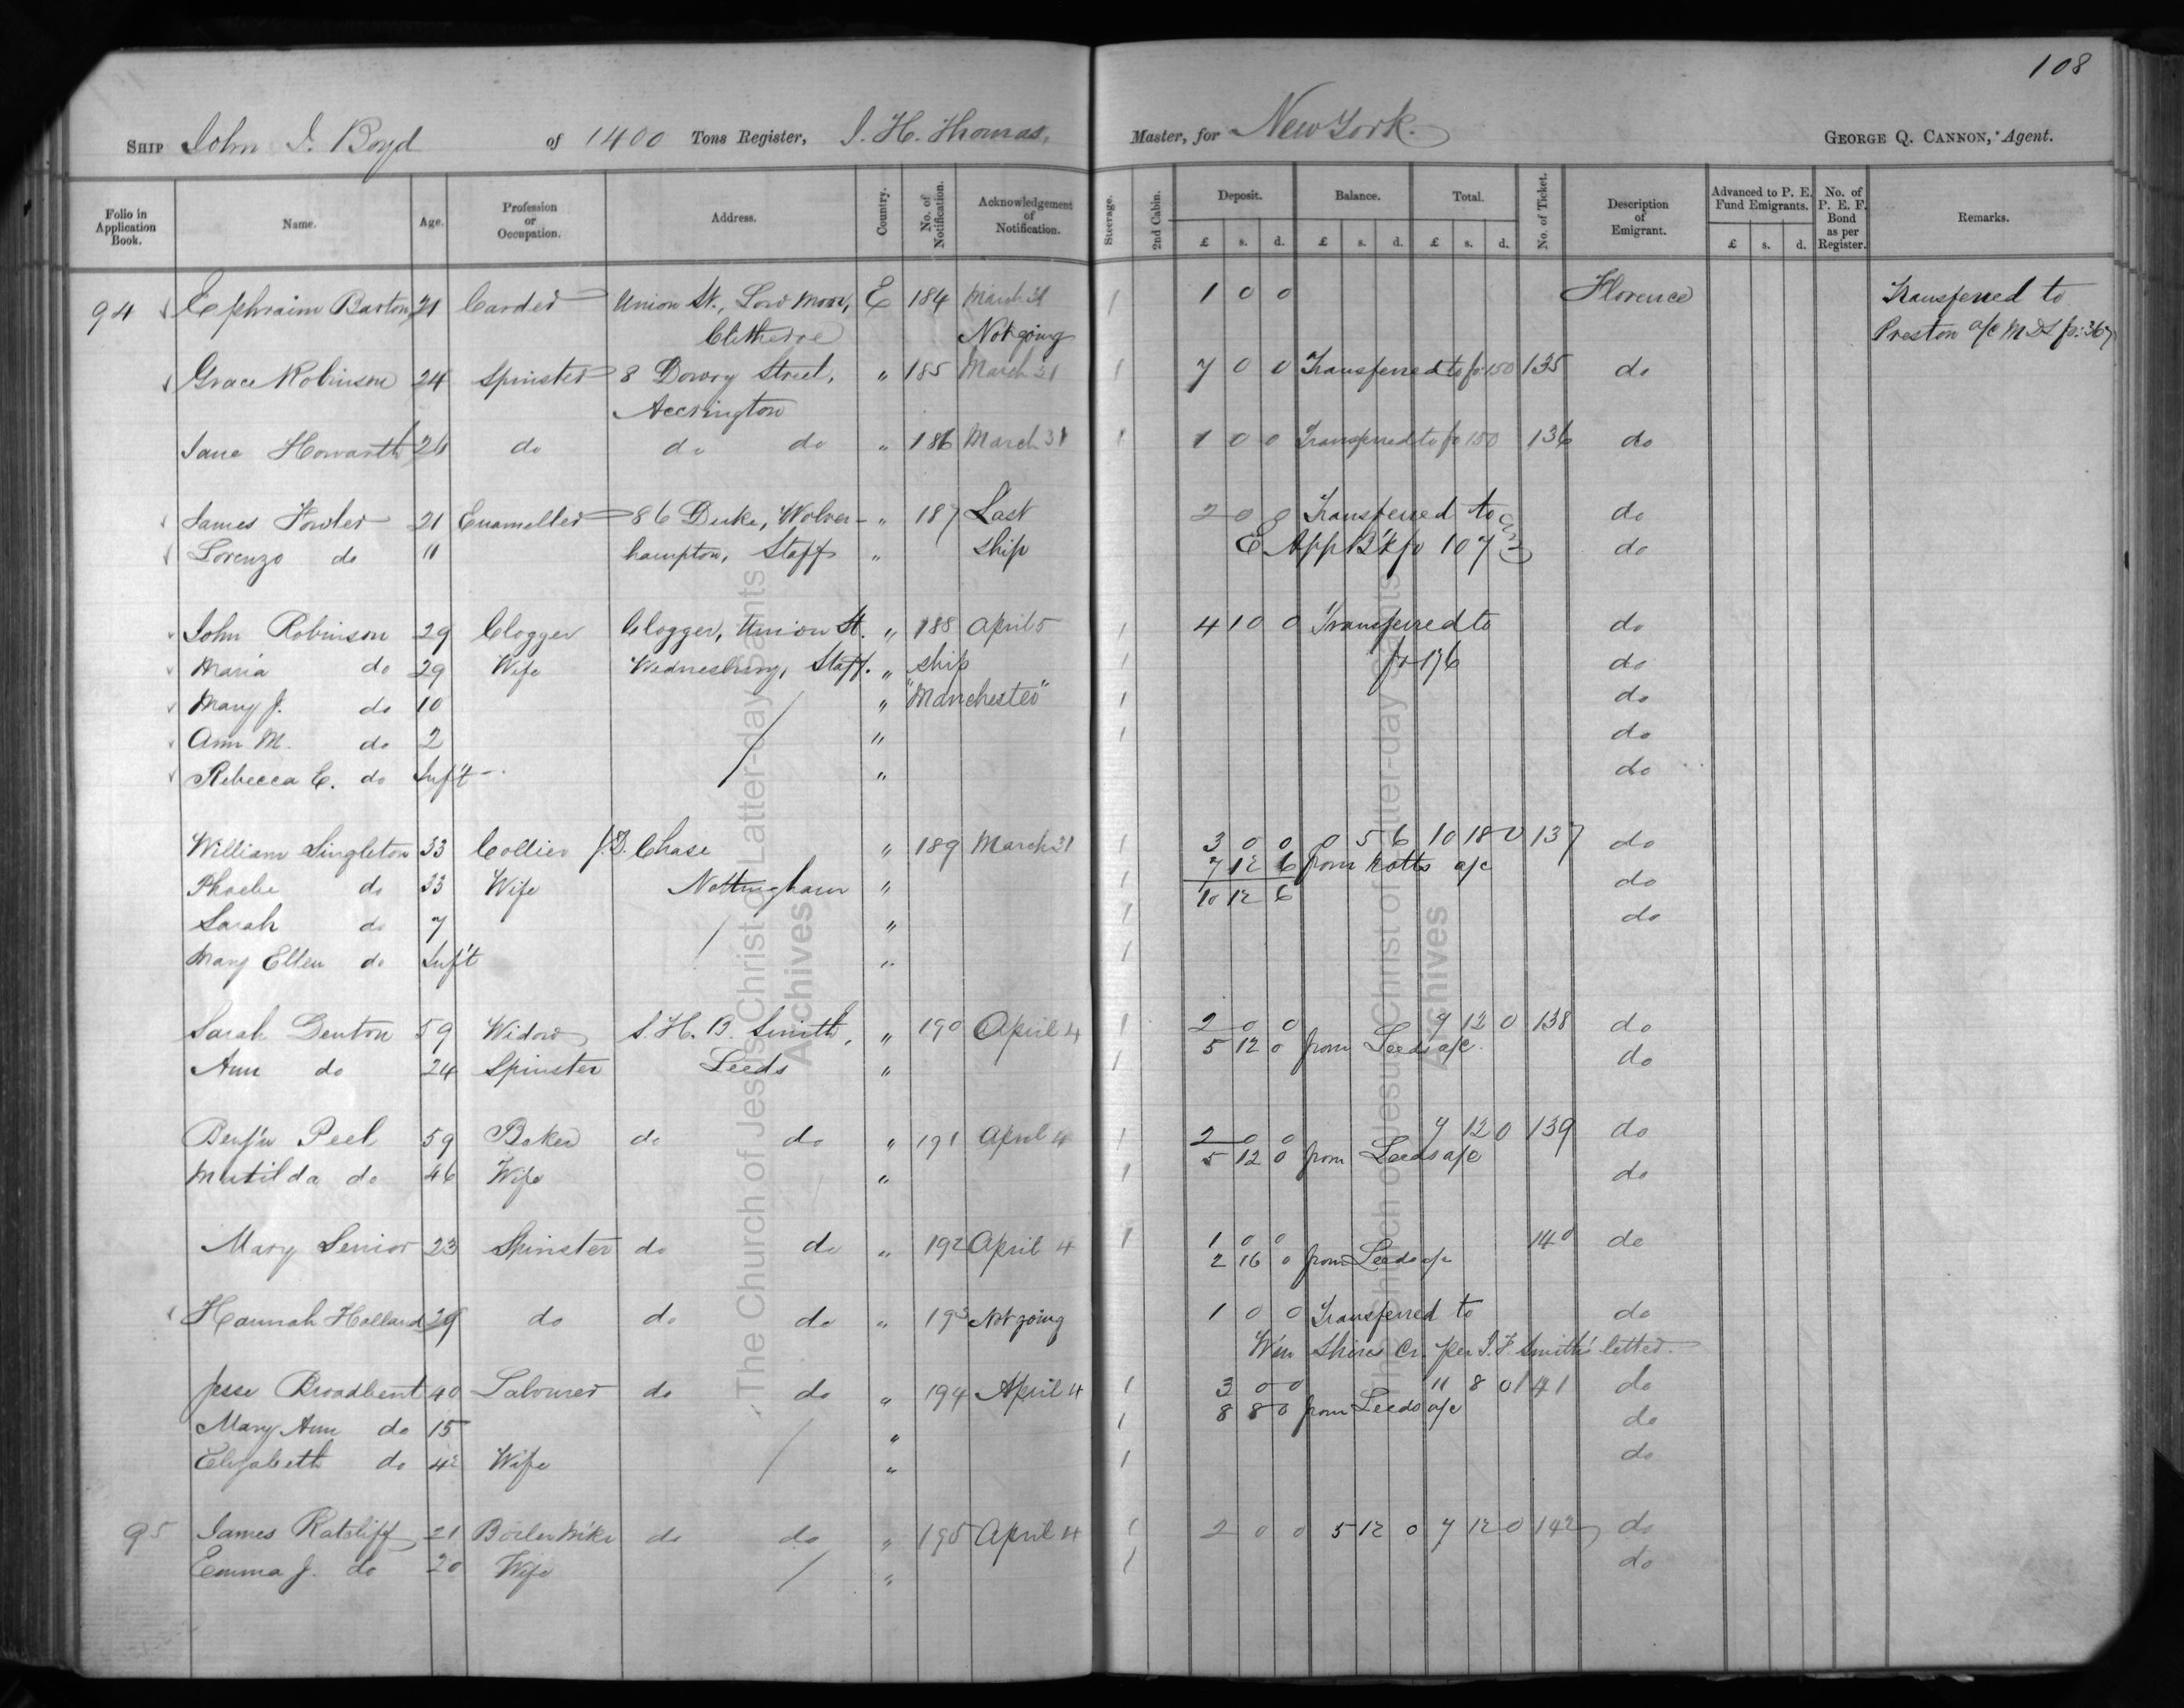 108
SHIP John J. Boyd of 1400 Tons Register, J. H. Thomas, Master, for New York. GEORGE Q. CANNON, Agent.
Folio in Application Book. Name. Age. Profession or Occupation. Address. Country. No. of Notification. Acknowledgement of Notification. Steerage. 2nd Cabin. Deposit. £ s. d. Balance. £ s. d. Total. £ s. d. No. of Ticket. Description of Emigrant. Advanced to P. E. Fund Emigrants. £ s. d. No. of P. E. F. Bond as per Register. Remarks.
94 Ephraim Barton 21 Carder Union St., Low Moor, E 184 March 31 1 1 0 0 Florence Transferred to
Clitheroe Not going Preston a/c M D L p: 367
Grace Robinson 24 Spinster 8 Dowry Street, " 185 March 31 1 7 0 0 Transferred to fo 150 135 do
Accrington
Jane Howarth 26 do do do " 186 March 31 1 1 0 0 Transferred to fo 150 136 do
James Fowler 21 Enameller 86 Duke, Wolver- " 187 Last 2 0 0 Transferred to do
Lorenzo do 11 hampton, Staff " ship E App B'k fo 107 do
John Robinson 29 Clogger Clogger, Union St. " 188 April 5 1 4 10 0 Transferred to do
Maria do 29 Wife Wednesbury, Staff. " ship 1 fo 176 do
Mary J. do 10 " "Manchester" 1 do
Ann M. do 2 " 1 do
Rebecca E. do Inf't " do
William Singleton 33 Collier J. D. Chase " 189 March 31 1 3 0 0 0 5 6 10 18 0 137 do
7 12 6 from Notts a/c
Phoebe do 33 Wife Nottingham " 1 10 12 6 do
Sarah do 7 " 1 do
Mary Ellen do Inf't " 1
Sarah Denton 59 Widow S. H. B. Smith, " 190 April 4 1 2 0 0 7 12 0 138 do
5 12 0 from Leeds a/c
Ann do 24 Spinster Leeds " 1 do
Benj'n Peel 59 Baker do do " 191 April 4 1 2 0 0 7 12 0 139 do
5 12 0 from Leeds a/c
Matilda do 46 Wife " 1 do
Mary Senior 23 Spinster do do " 192 April 4 1 1 0 0 140 do
2 16 0 from Leeds a/c
Hannah Holland 29 do do do " 193 Not going 1 0 0 Transferred to do
W'm Shires Cr. per J. F. Smith's letter.
Jesse Broadbent 40 Labourer do do " 194 April 4 1 3 0 0 11 8 0 141 do
8 8 0 from Leeds a/c
Mary Ann do 15 " 1 do
Elizabeth do 42 Wife " 1 do
95 James Ratcliff 21 Boiler M'kr do do " 195 April 4 1 2 0 0 5 12 0 7 12 0 142 do
Emma J. do 20 Wife " 1 do
The Church of Jesus Christ of Latter-day Saints
Archives
The Church of Jesus Christ of Latter-day Saints
Archives